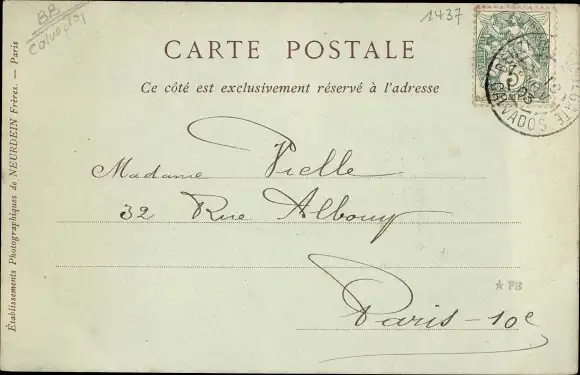 BB
Calvados
1437
CARTE POSTALE
Ce côté est exclusivement réservé à l'adresse
5
CALVADOS
Madame Vielle
32 Rue Albouy
Paris-10e
☆ PB
Établissements Photographiques de NEURDEIN Frères. — Paris